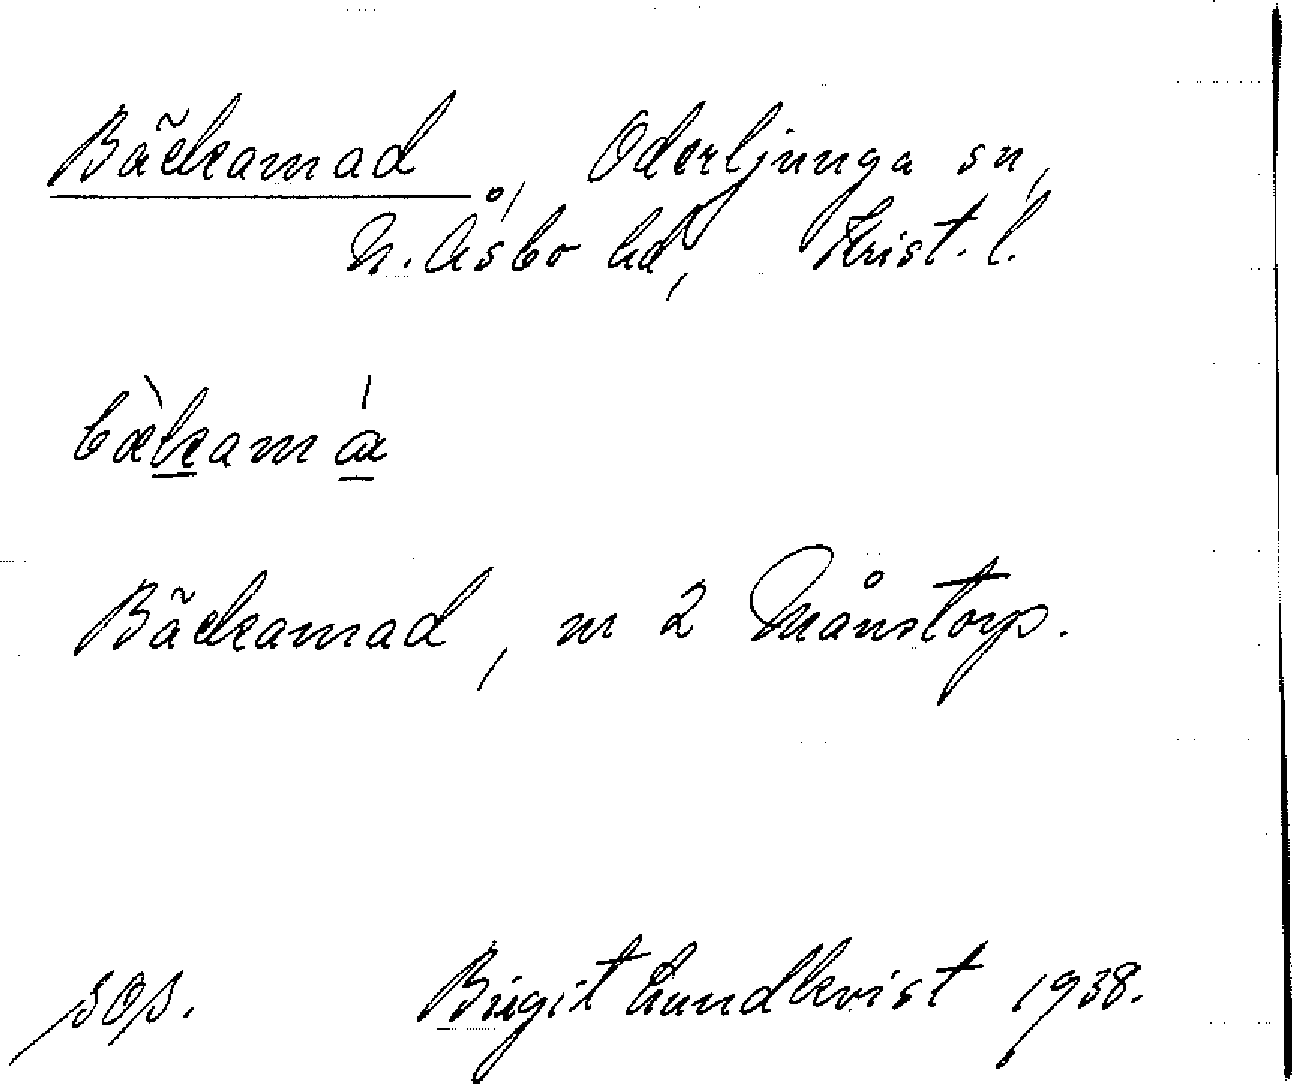 Bäckamad, Oderljunga sn,
N. Åsbo hd, Krist. l.
bæ̀kamá
Bäckamad, m 2 Månstorp.
sos. Birgit Lundkvist 1938.